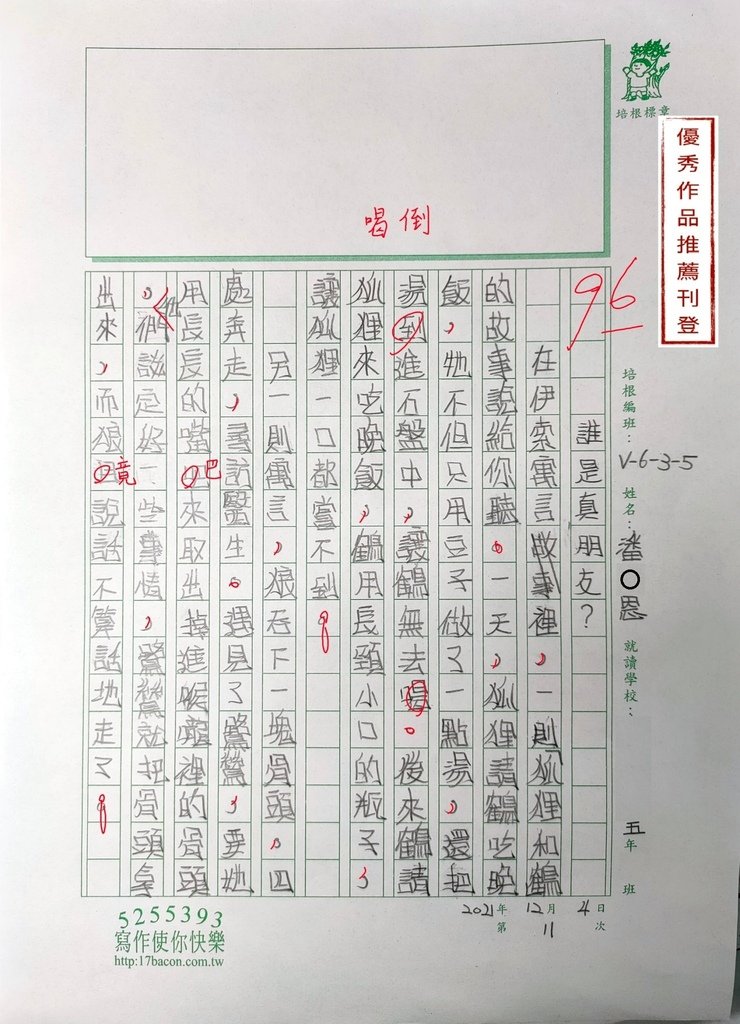 培根標章
優秀作品推薦刊登
喝倒
96
培根編班：V-6-3-5
姓名：潘〇恩
就讀學校：
五年 班
誰是真朋友？
在伊索寓言故事裡，一則「狐狸和鶴
的故事說給你聽。一天，狐狸請鶴吃晚
飯，牠不但只用豆子做了一點湯，還把
湯到進石盤中，讓鶴無去喝。後來鶴請
狐狸來吃晚飯，鶴用長頸小口的瓶子，
讓狐狸一口都嘗不到。
另一則寓言，狼吞下一塊骨頭。四
處奔走，尋訪醫生。遇見了鷺鷥，要牠
用長長的嘴吧來取出掉進喉嚨裡的骨頭
，他們談定好一些事情，鷺鷥就把骨頭拿
出來，而狼竟說話不算話地走了。
2021年12月4日
第11次
5255393
寫作使你快樂
http:17bacon.com.tw